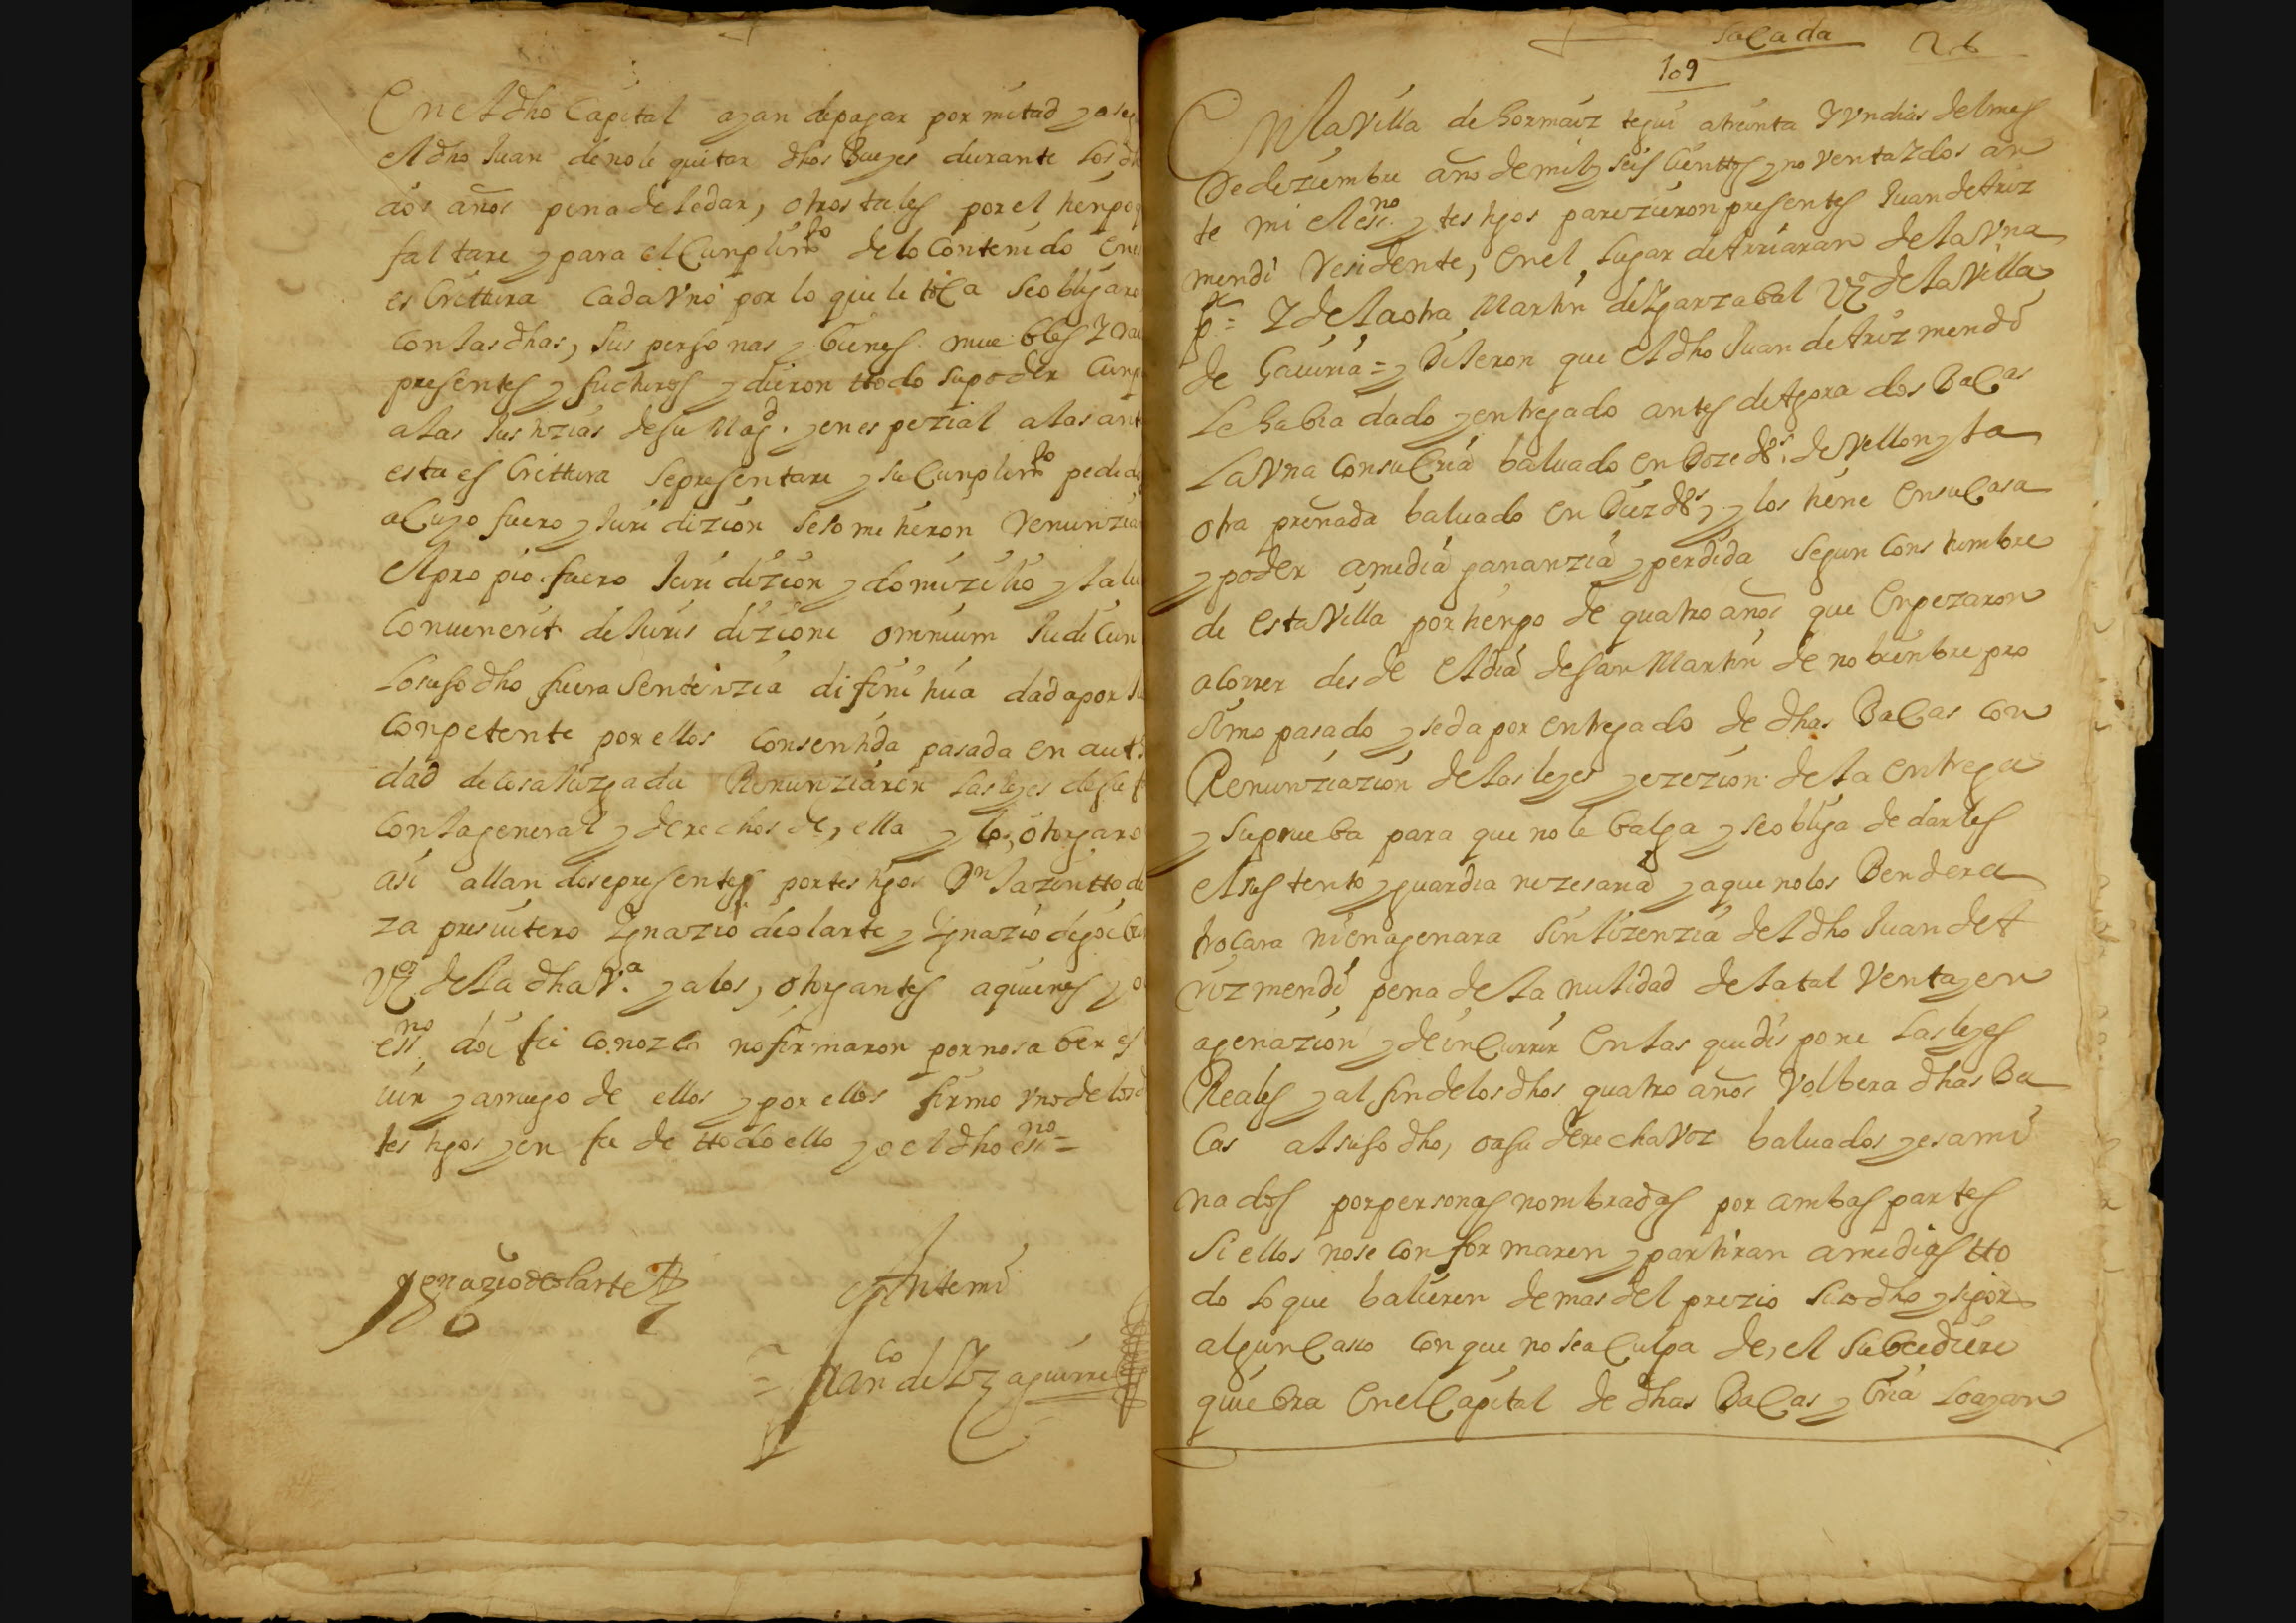 En el dho Capital ayan de pagar por mitad y aseg
el dho Juan de no le quitar dhos Bueyes durante los dh
dos años pena de le dar, otros tales por el tienpo q
faltare y para el Cunplimto de lo Contenido en e
escrittura cada Vno por lo que le toca se obligaro
con las dhas, sus personas y bienes muebles y rai
presentes y futturos y dieron ttodo su poder Cunp
a las Justizias de su Magd. y en espezial a las ant
esta escrittura se presentare y su Cunplimto pedid
a Cuyo fuero y Juridizion se sometieron renunzia
el propio fuero Juridizion y domizilio y la le
Convenerit de Jurisdizione omnium Judicun
lo susodho fuera sentenzia difinitiua dada por Ju
Conpetente por ellos consentida pasada en autt
dad de cosa Juzgada Renunziaron las leyes de su f
con la general y derechos de, ella y lo, otorgaro
asi allandose presentes por testigos Dn Jazintto de
za presuitero Ygnazio de olarte y Ygnazio de goi
Vos de la dha Va. y a los, otorgantes a quienes yo
essno doi fee conozco no firmaron por no saber es
uir y a rruego de ellos y por ellos firmo vno de los d
testigos y en fee de ttodo ello yo el dho esno =
Ygnazio de olarte
Ante mi
= Franco de Yzaguirre
Sacada 26
109
En la Villa de Hormaiztegui a treinta Y Vn dias del mes
de deziembre año de mil y seis cienttos y noventa Y dos an
te mi el esno. y testigos parezieron presentes Juan de Ariz
mendi residente, en el, lugar de Arriaran de la Vna
pte = Y de la otra Martin de Ygarzabal Vo de la Villa
de Gauiria = y Dixeron que el dho Juan de Arizmendi
le habia dado y entregado antes de Agora dos Bacas
la Vna con su Cria baluado en Doze ds. de Vellon y la
otra preñada baluado en Diez ds. y los tiene en su Casa
y poder a media gananzia y perdida segun constumbre
de esta Villa por tienpo de quatro años que Enpezaron
a Correr desde el dia de san Martin de nobienbre pro
simo pasado y se da por entregado de dhas Bacas con
Renunziazion de las leyes y ezezion de la entrega
y su prueba para que no le balga y se obliga de darles
el sustento y guardia nezesaria y a que no los Bendera
trocara ni enagenara sin lizenzia del dho Juan de A
rizmendi pena de la nulidad de la tal Venta y en
agenazion y de inCurrir en las que dispone las leyes
Reales y al fin de los dhos quatro años Volbera dhas Ba
Cas al susodho, o a su derecha Voz baluados y esami
nados por personas nombradas por ambas partes
si ellos no se conformaren y partiran a medias tto
do lo que balieren de mas del prezio susodho y si por
algun Caso con que no sea Culpa de, el subzediere
quiebra en el Capital de dhas Bacas y Cria lo ayan